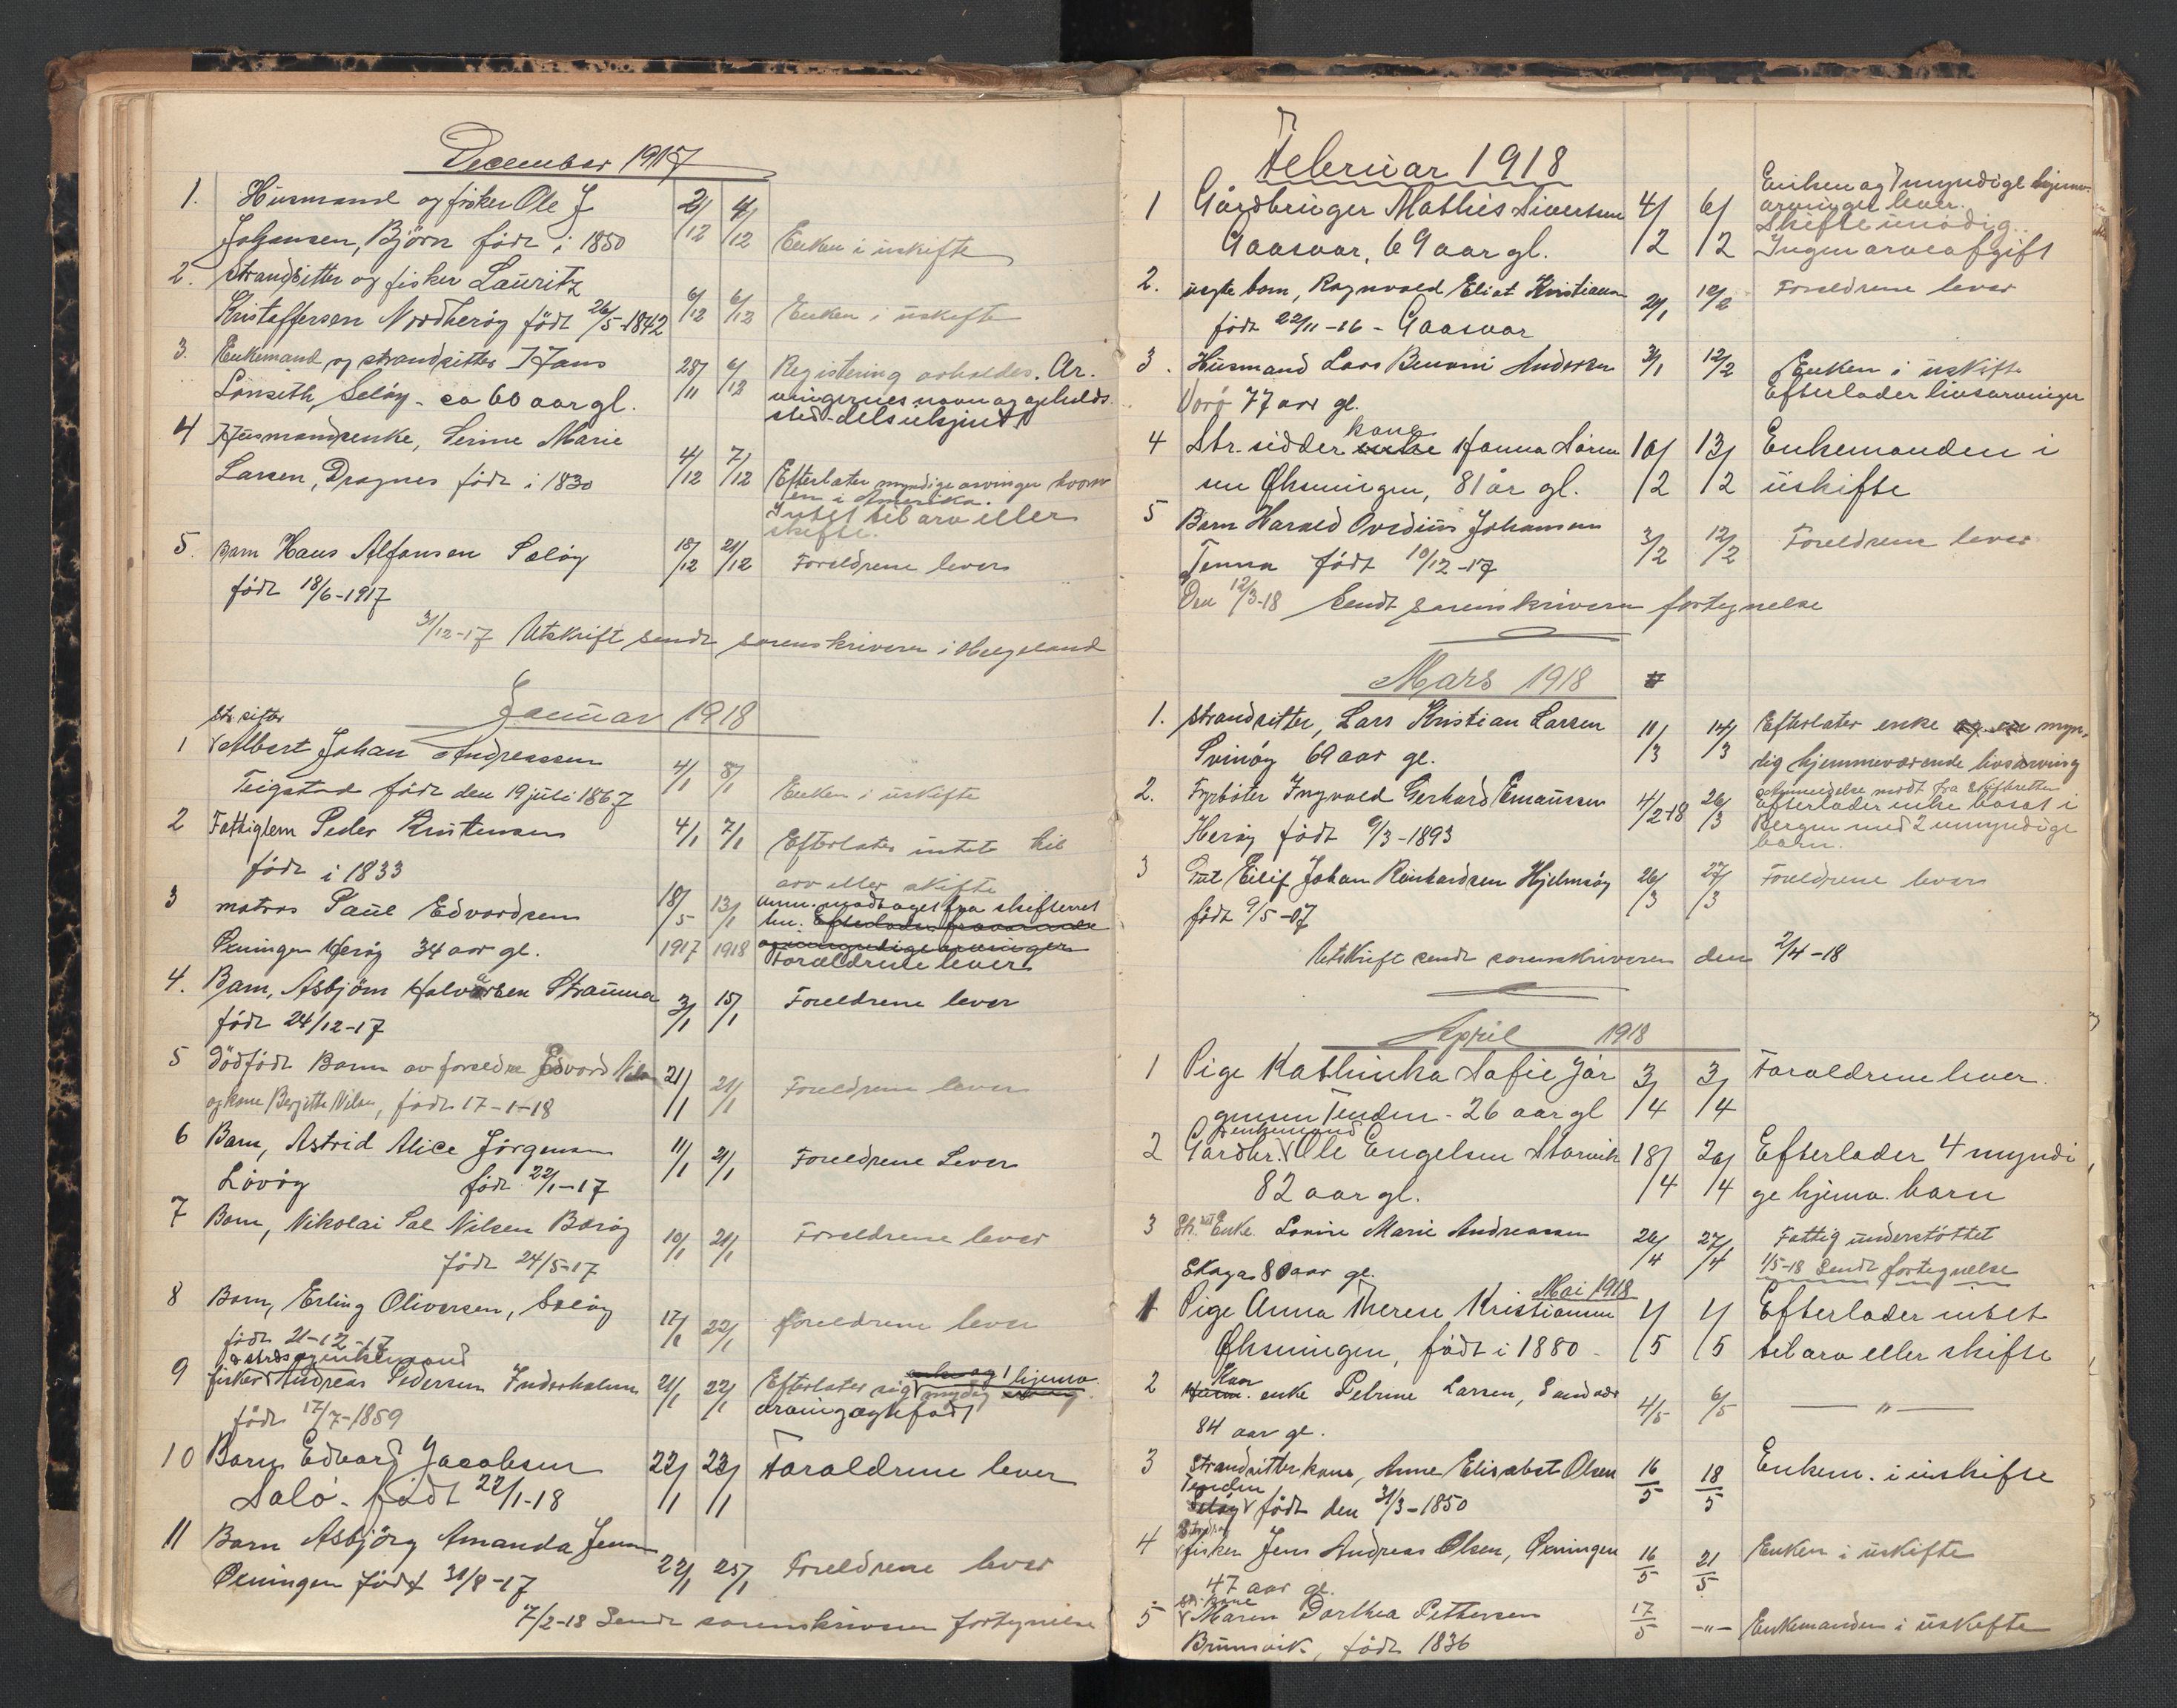 December 1917
1. Husmand og fisker Ole J 2/12 4/12
Johansen, Björn född i 1850 Enken i uskifte
2. Strandsitter og fisker Lauritz
Kristoffersen Nordherøy född 26/5-1842 6/12 6/12 Enken i uskifte
3. Enkemand og strandsitter Hans 28/11 6/12 Registering avholdes. Ar-
Lonseth, Seløy - ca 60 aar gl. vingernes navn og opholds-
sted - dels ukjendt
4 Husmandsenke, Serine Marie
Larsen, Dragnes född i 1830 4/12 7/12 Efterlater myndige arvinger hvorav
en i Amerika.
Intet til arv eller
skifte.
5. Barn Hans Alfonsen Seløy 18/12 21/12 Foreldrene lever
född 18/6-1917
31/12-17 Utskrift sendt sorenskriveren i Helgeland
Januar 1918
Str. sitter
1 Albert Johan Andreassen 4/1 8/1
Teigstad född den 19 juli 1867 Enken i uskifte
2 Fattiglem Peder Kristensen 4/1 7/1 Efterlater intet til
född i 1833 arv eller skifte
3 matros Paul Edvardsen 18/5 13/1 Anm. modtaget fra skifteret
ten. Efterlader
Øxningen Herøy 34 aar gl. 1917 1918 Foraeldrene lever
4. Barn, Asbjörn Halvorsen Strauma 3/1 15/1 Foreldrene lever
född 24/12-17
5 Dödfödt Barn av foreldre Edvard Nilsen 21/1 21/1 Foreldrene lever
og kone Bergitte Nilsen, född 17-1-18
6 Barn, Astrid Alice Jörgensen 11/1 21/1 Foreldrene Lever
Lövöy född 22/1-17
7 Barn, Nikolai Sal Nilsen Baröy 10/1 21/1 Foreldrene lever
född 24/5-17
8 Barn, Erling Oliversen, Seløy 17/1 22/1 foreldrene lever
född 21-12-17
strds og enkemand
9 fisker Andreas Pedersen Inderholmen 21/1 22/1 Efterlater sig 1 hjemv. myndig
född 17/7-1859 arving ægtefödt
10 Barn Edvard Jacobsen 22/1 23/1 Foraeldrene lever
Salö - födt 22/1-18
11 Barn Asbjörg Amanda Jensen 22/1 25/1 Foreldrene lever
Øxningen födt 31/8-17
7/2-18 Sendt sorenskriveren fortegnelse
Februar 1918
1 Gårdbruger Mathis Sivertsen 4/2 6/2 Enken og 7 myndige hjemv.
arvinger lever.
Skifte unødig.
Gaasvær, 69 aar gl. Ingen arveafgift
2. uegte barn, Ragnvald Eliot Kristiansen 21/1 12/2 Foreldrene lever
född 22/11-16 - Gaasvær
3. Husmand Lars Benoni Andersen 3/1 12/2 Enken i uskifte
Vorö 77 aar gl. Efterlader livsarvinger
4 Str. sidder enke kone Hanna Sören 10/2 13/2 Enkemanden i
sen Øksningen, 81 år gl. uskifte
5 Barn Harald Ovedius Johansen 3/2 12/2 Foreldrene lever
Tenna född 10/12-17
Den 12/3-18 Sendt sorenskriveren fortegnelse
Mars 1918
1. Strandsitter, Lars Kristian Larsen 11/3 14/3 Efterlater enke og en myn-
Svinöy 69 aar gl. dig hjemmeværende livsarving
2. Fyrböter Ingvald Gerhard Emaussen 4/2-18 26/3 Anmeldelse modt fra skifteretten
efterlader enke bosat i
Herøy födt 9/3-1893 Bergen med 2 umyndige
barn.
3 Gut Eilif Johan Reinhardsen Hjelmsöy 26/3 27/3 Foreldrene lever
födt 9/5-07
Utskrift sendt sorenskriveren den 2/4-18
April 1918
1 Pige Kathinka Sofie Jør 3/4 3/4 Foraeldrene lever.
gensen Tenden - 26 aar gl
enkemand
2 Gårdbr. Ole Engelsen Storvik 18/4 20/4 Efterlader 4 myndi
82 aar gl. ge hjemv. barn
3 Str. Enke Lovise Marie Andreassen 26/4 27/4 Fattig understöttet
Skaga 80 aar gl. 1/5-18 Sendt fortegnelse
Mai 1918
1 Pige Anna Therese Kristiansen 4/5 4/5 Efterlader intet
Øksningen, födt i 1880 - til arv eller skifte
2 Kaar enke Petrine Larsen, Sandvær 4/5 6/5 — " —
84 aar gl.
3 Strandsitterkone, Anne Elisabet Olsen 16/5 18/5 Enkem. i uskifte
Tenden
Seløy födt den 31/3-1850
4 fisker Jens Andreas Olsen, Øxningen 16/5 21/5 Enken i uskifte
47 aar gl.
str. kone
5 Maren Dorthea Pettersen 17/5 -"- Enkemanden i uskifte
Brunsvik, födt 1836